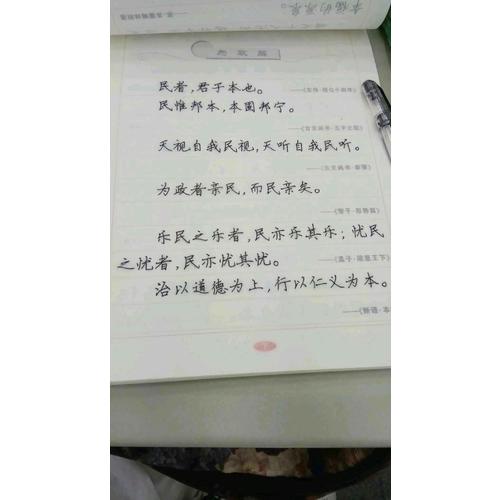 幸福的源泉。
民者,君于本也。
——《左传·桓公十四年》
民惟邦本,本固邦宁。
——《古文尚书·五子之歌》
天视自我民视,天听自我民听。
——《古文尚书·泰誓》
为政者亲民,而民亲矣。
——《管子·形势篇》
乐民之乐者,民亦乐其乐;忧民
之忧者,民亦忧其忧。
——《孟子·梁惠王下》
治以道德为上,行以仁义为本。
——《新语·本